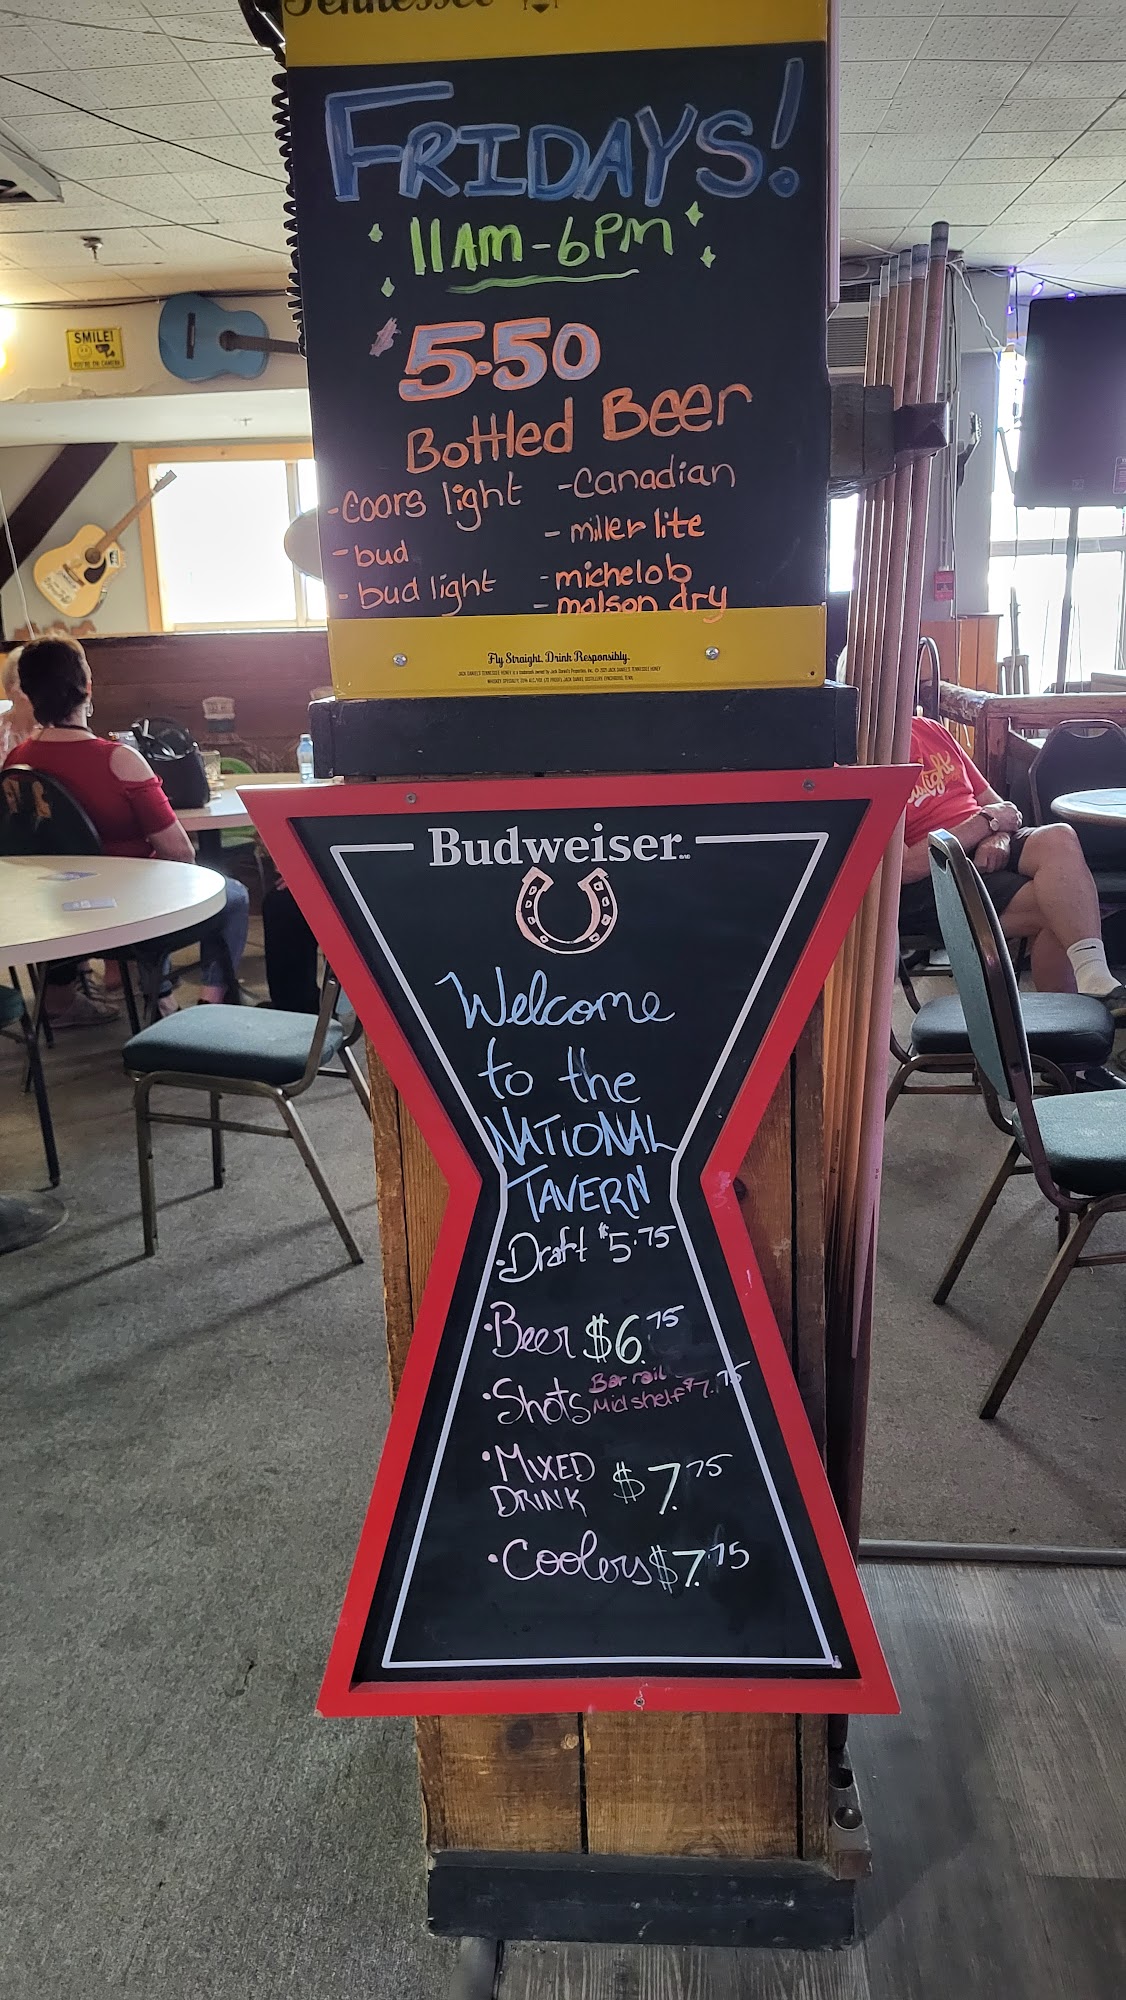 Tennessee
FRIDAYS!
11AM-6PM
$5.50
Bottled Beer
-Coors light
-Canadian
-bud
-miller lite
-bud light
-michelob
-molson dry
SMILE!
YOU'RE ON CAMERA
Fly Straight. Drink Responsibly.
Budweiser
Welcome
to the
NATIONAL
TAVERN
·Draft $5.75
·Beer $6.75
·Shots Bar rail
Mid shelf $7.75
·MIXED
DRINK $7.75
·Coolers $7.75